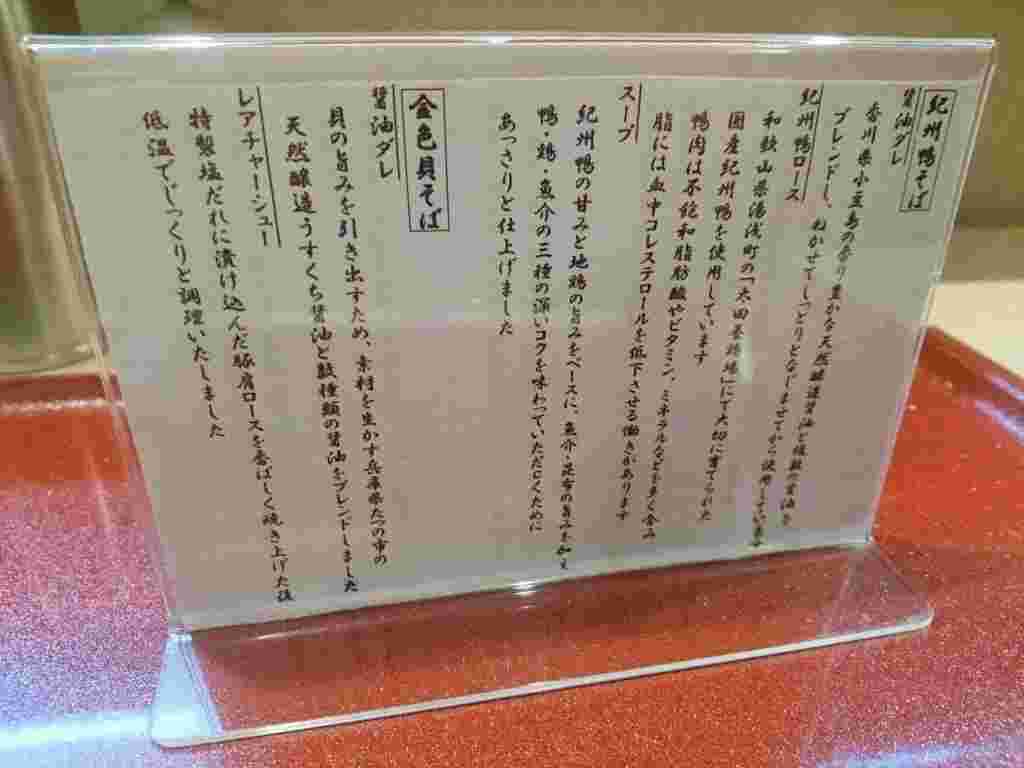 紀州鴨そば
醤油ダレ
香川県小豆島の香り豊かな天然醸造醤油と複数の醤油を
ブレンドし、ねかせてしっとりとなじませてから使用しています
紀州鴨ロース
和歌山県湯浅町の「太田養鶏場」にて大切に育てられた
国産紀州鴨を使用しています
鴨肉は不飽和脂肪酸やビタミン、ミネラルなどを多く含み
脂には血中コレステロールを低下させる働きがあります
スープ
紀州鴨の甘みと地鶏の旨みをベースに、魚介・昆布の旨みを加え
鴨・鶏・魚介の三種の深いコクを味わっていただくために
あっさりと仕上げました
金色貝そば
醤油ダレ
貝の旨みを引き出すため、素材を生かす兵庫県たつの市の
天然醸造うすくち醤油と数種類の醤油をブレンドしました
レアチャーシュー
特製塩だれに漬け込んだ豚肩ロースを香ばしく焼き上げた後
低温でじっくりと調理いたしました